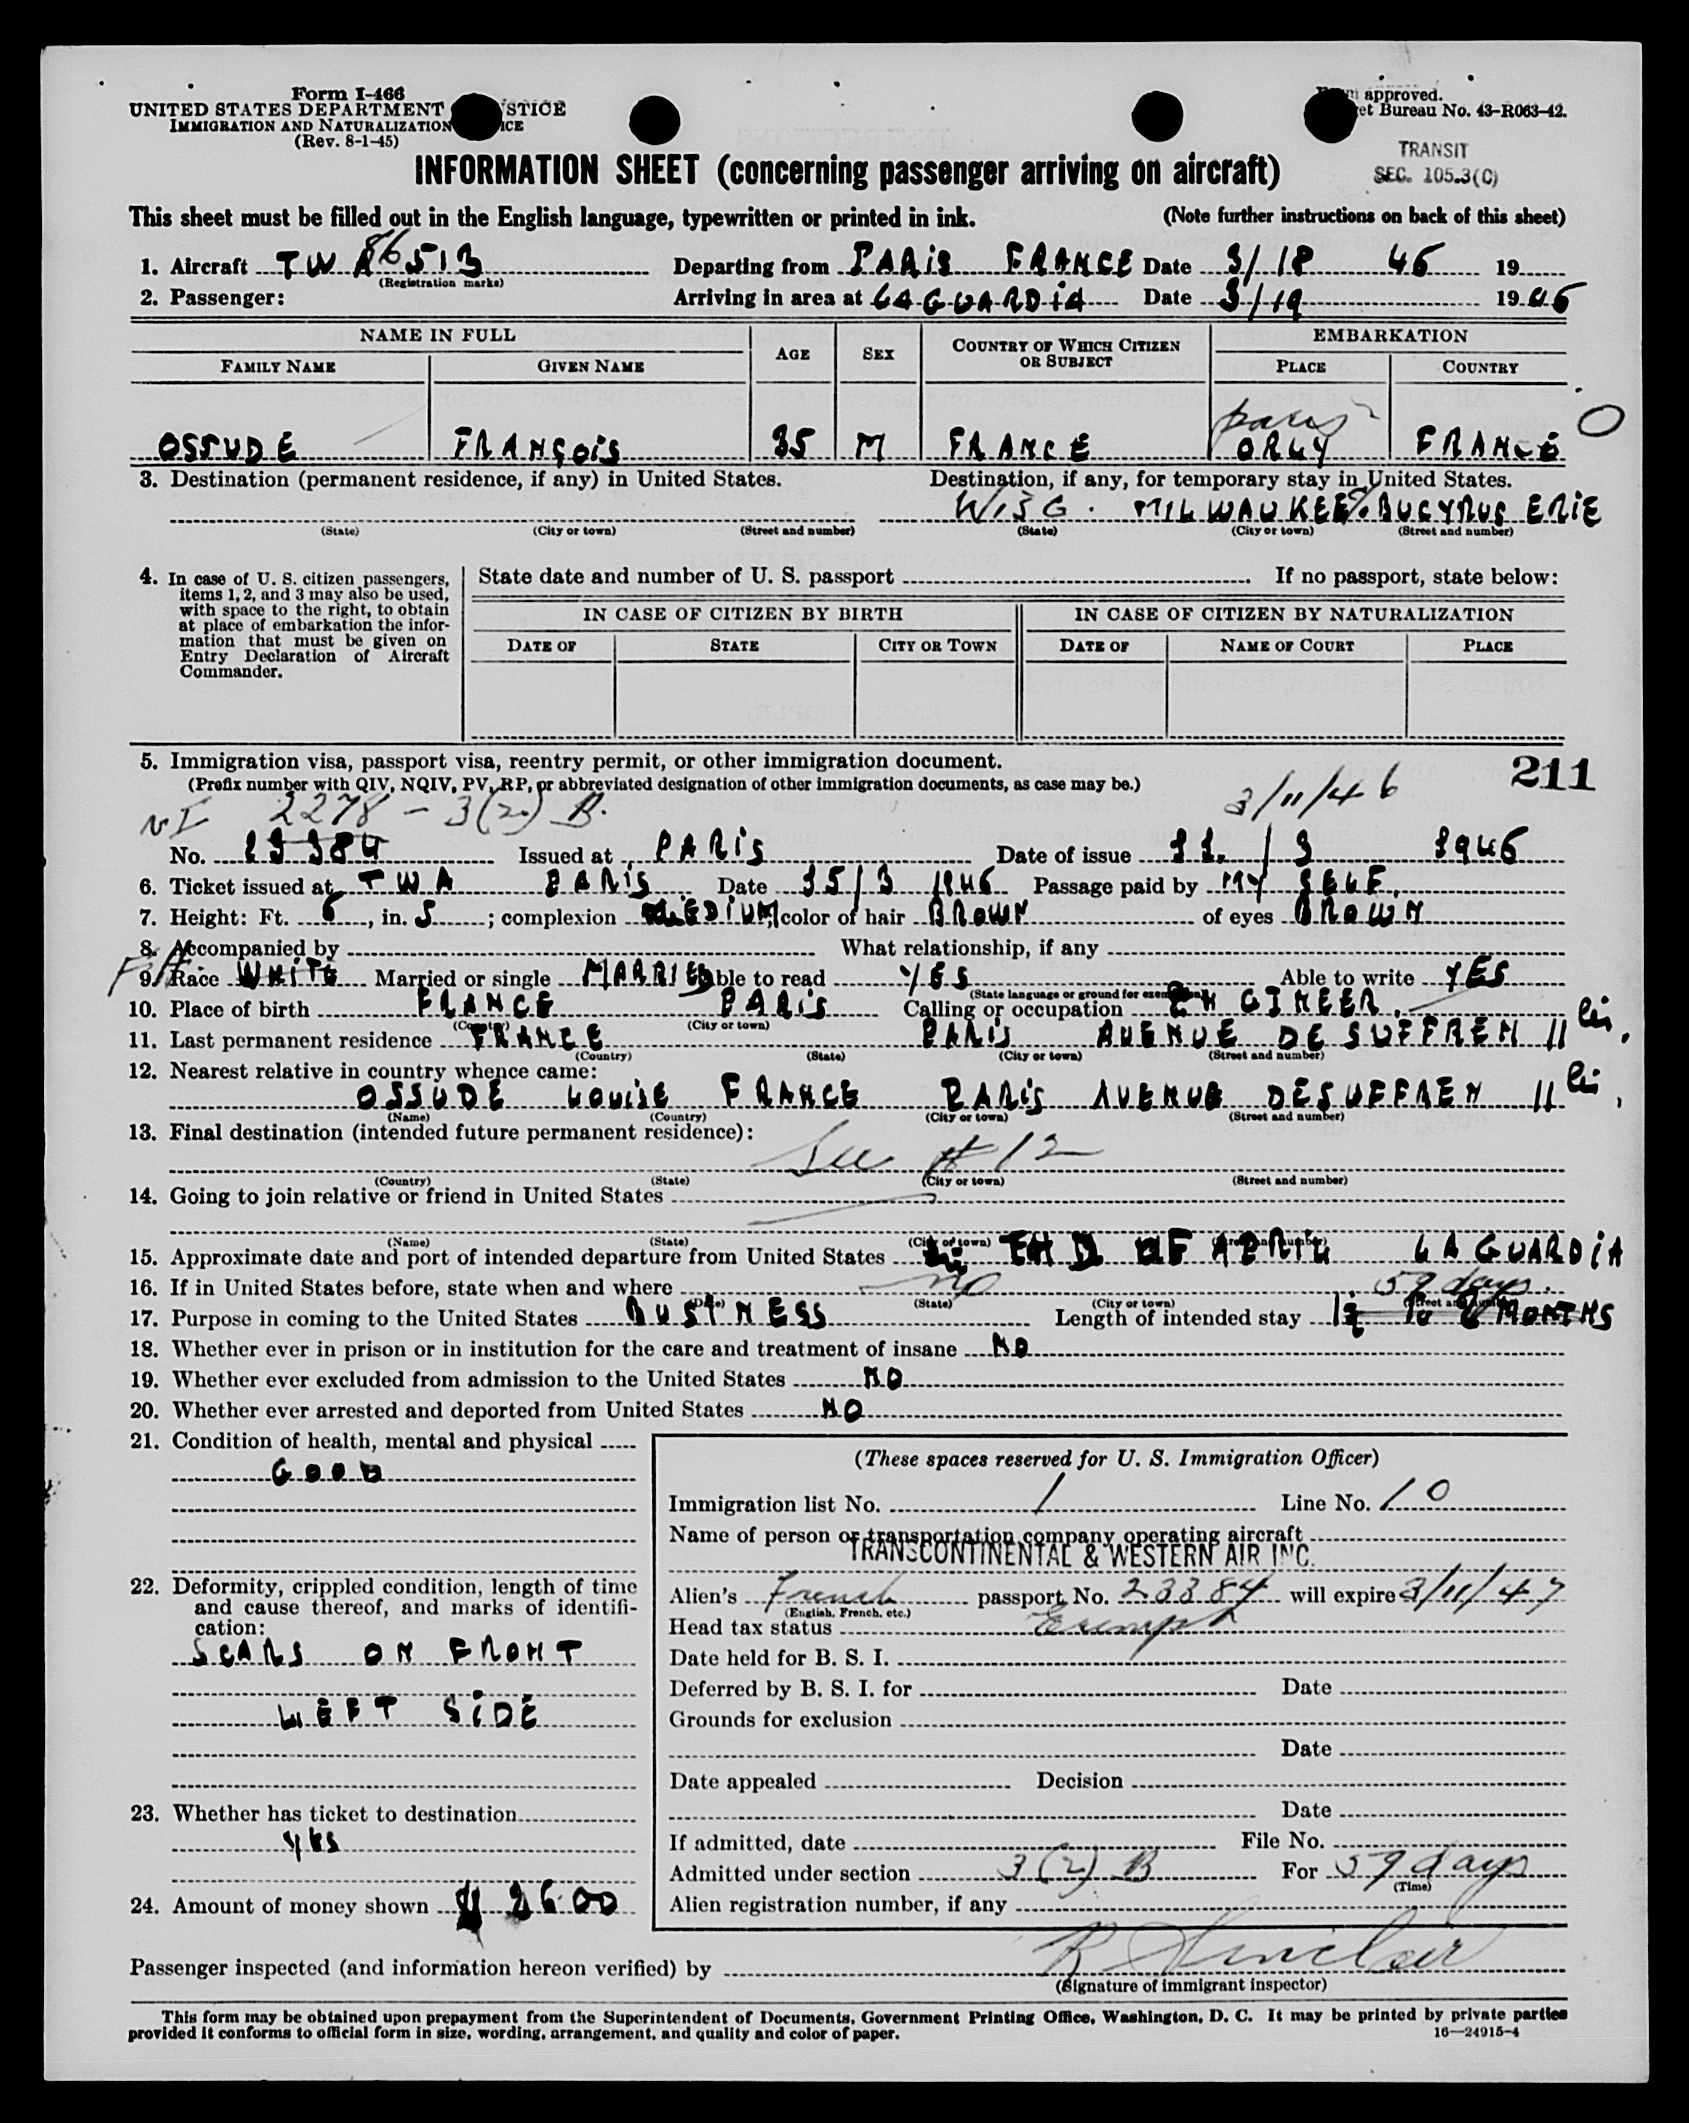 Form I-466
UNITED STATES DEPARTMENT STICE
IMMIGRATION AND NATURALIZATION ICE
(Rev. 8-1-45)
approved.
et Bureau No. 43-R063-42.
TRANSIT
SEC. 105.3(C)
INFORMATION SHEET (concerning passenger arriving on aircraft)
This sheet must be filled out in the English language, typewritten or printed in ink. (Note further instructions on back of this sheet)
1. Aircraft TWA 86513 Departing from PARIS FRANCE Date 3/18 46 19
(Registration marks)
2. Passenger: Arriving in area at LA GUARDIA Date 3/19 1946
NAME IN FULL AGE SEX COUNTRY OF WHICH CITIZEN OR SUBJECT EMBARKATION
FAMILY NAME GIVEN NAME PLACE COUNTRY
paris
OSSUDE FRANÇOIS 35 M FRANCE ORLY FRANCE O
3. Destination (permanent residence, if any) in United States. Destination, if any, for temporary stay in United States.
WISC. MILWAUKEE % BUCYRUS ERIE
(State) (City or town) (Street and number) (State) (City or town) (Street and number)
4. In case of U. S. citizen passengers, items 1, 2, and 3 may also be used, with space to the right, to obtain at place of embarkation the information that must be given on Entry Declaration of Aircraft Commander.
State date and number of U. S. passport If no passport, state below:
IN CASE OF CITIZEN BY BIRTH IN CASE OF CITIZEN BY NATURALIZATION
DATE OF STATE CITY OR TOWN DATE OF NAME OF COURT PLACE
5. Immigration visa, passport visa, reentry permit, or other immigration document. 211
(Prefix number with QIV, NQIV, PV, RP, or abbreviated designation of other immigration documents, as case may be.)
NI 2278 - 3(2) B. 3/11/46
No. 23384 Issued at PARIS Date of issue 11. / 3 1946
6. Ticket issued at TWA PARIS Date 15/3 1946 Passage paid by MY SELF.
7. Height: Ft. 6, in. 5; complexion MEDIUM color of hair BROWN of eyes BROWN
8. Accompanied by What relationship, if any
9. Race WHITE Married or single MARRIED Able to read YES Able to write YES
(State language or ground for exemption)
10. Place of birth FRANCE PARIS Calling or occupation ENGINEER.
(Country) (City or town)
11. Last permanent residence FRANCE PARIS AVENUE DE SUFFREN 11
(Country) (State) (City or town) (Street and number)
12. Nearest relative in country whence came:
OSSUDE LOUISE FRANCE PARIS AVENUE DE SUFFREN 11
(Name) (Country) (City or town) (Street and number)
13. Final destination (intended future permanent residence):
See # 12
(Country) (State) (City or town) (Street and number)
14. Going to join relative or friend in United States
(Name) (State) (City or town) (Street and number)
15. Approximate date and port of intended departure from United States END OF APRIL LA GUARDIA
16. If in United States before, state when and where no
(Date) (State) (City or town) (Street and number)
59 days.
17. Purpose in coming to the United States BUSINESS Length of intended stay MONTHS
18. Whether ever in prison or in institution for the care and treatment of insane NO
19. Whether ever excluded from admission to the United States NO
20. Whether ever arrested and deported from United States NO
21. Condition of health, mental and physical
GOOD
22. Deformity, crippled condition, length of time and cause thereof, and marks of identification:
SCARS ON FRONT
LEFT SIDE
23. Whether has ticket to destination
yes
24. Amount of money shown $ 2600
(These spaces reserved for U. S. Immigration Officer)
Immigration list No. 1 Line No. 10
Name of person or transportation company operating aircraft
TRANSCONTINENTAL & WESTERN AIR INC.
Alien's French passport No. 23384 will expire 3/11/47
(English, French, etc.)
Head tax status Exempt
Date held for B. S. I.
Deferred by B. S. I. for Date
Grounds for exclusion
Date
Date appealed Decision
Date
If admitted, date File No.
Admitted under section 3(2) B For 59 days
(Time)
Alien registration number, if any
Passenger inspected (and information hereon verified) by R Sinclair
(Signature of immigrant inspector)
This form may be obtained upon prepayment from the Superintendent of Documents, Government Printing Office, Washington, D. C. It may be printed by private parties
provided it conforms to official form in size, wording, arrangement, and quality and color of paper. 16—24915-4